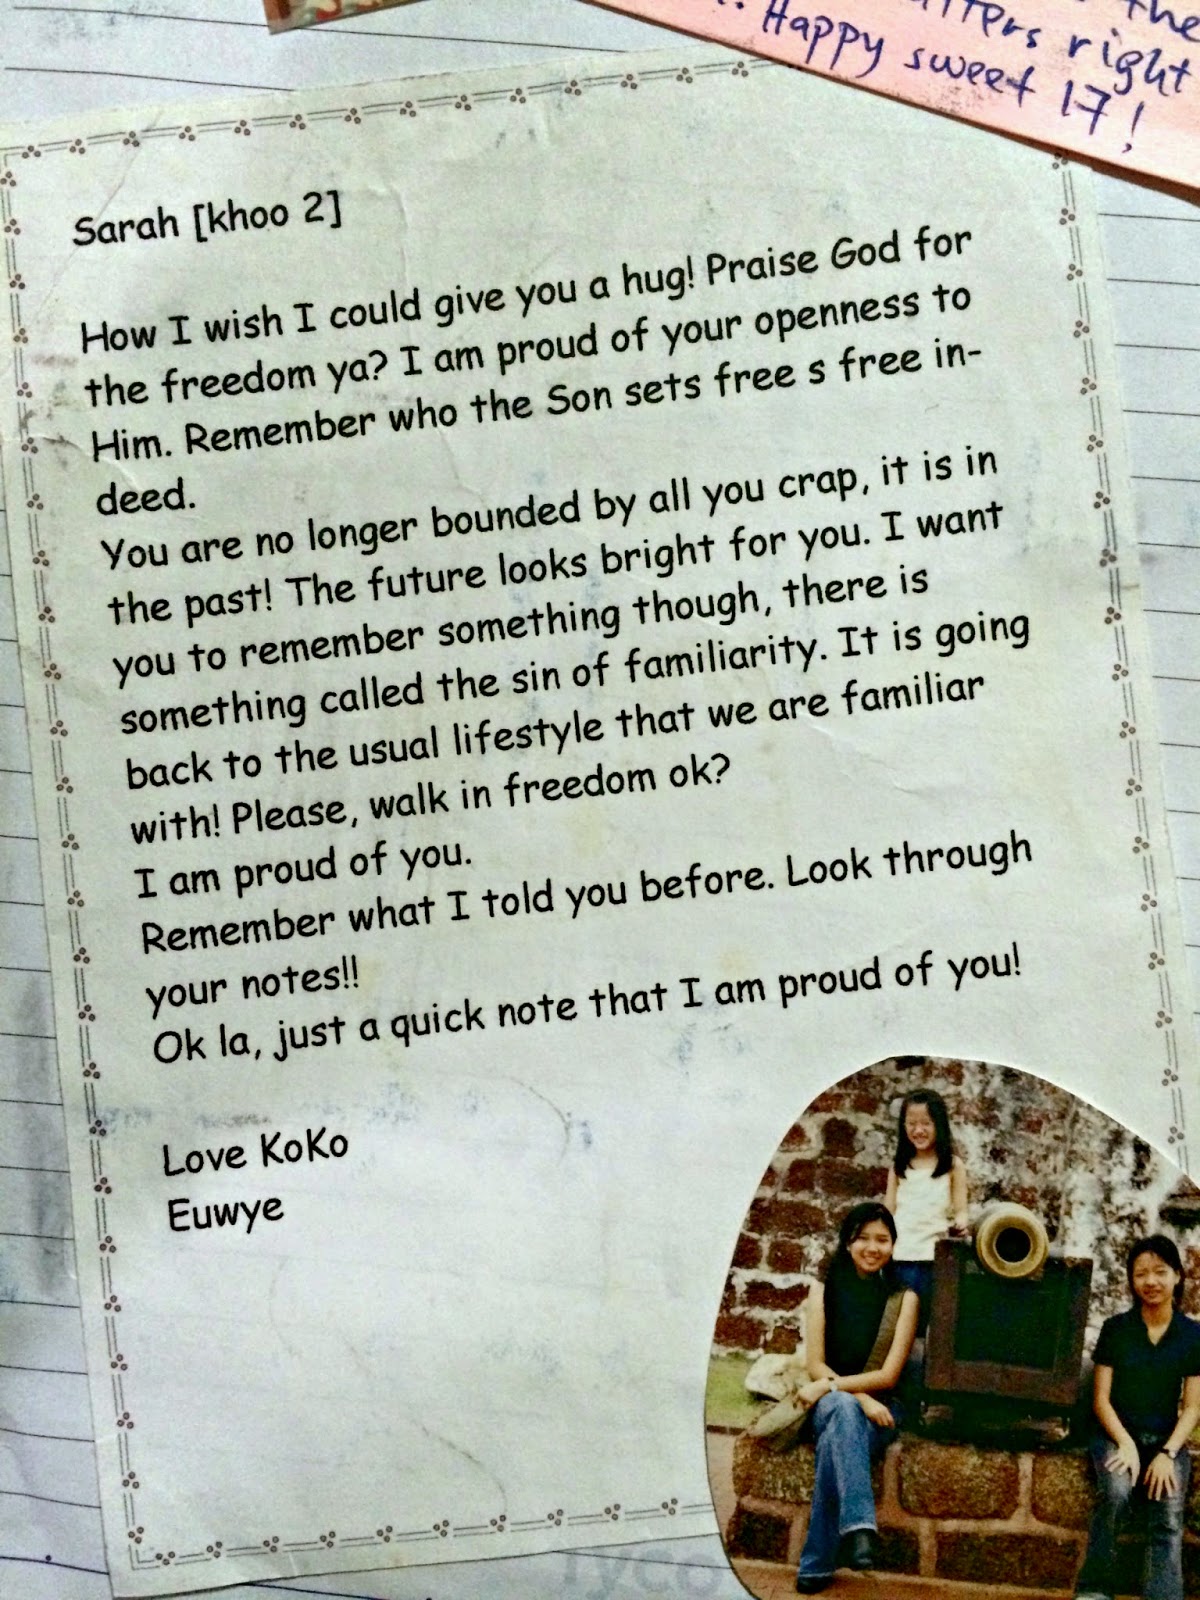 the
tters right
Happy sweet 17!
Sarah [khoo 2]
How I wish I could give you a hug! Praise God for
the freedom ya? I am proud of your openness to
Him. Remember who the Son sets free s free in-
deed.
You are no longer bounded by all you crap, it is in
the past! The future looks bright for you. I want
you to remember something though, there is
something called the sin of familiarity. It is going
back to the usual lifestyle that we are familiar
with! Please, walk in freedom ok?
I am proud of you.
Remember what I told you before. Look through
your notes!!
Ok la, just a quick note that I am proud of you!
Love KoKo
Euwye